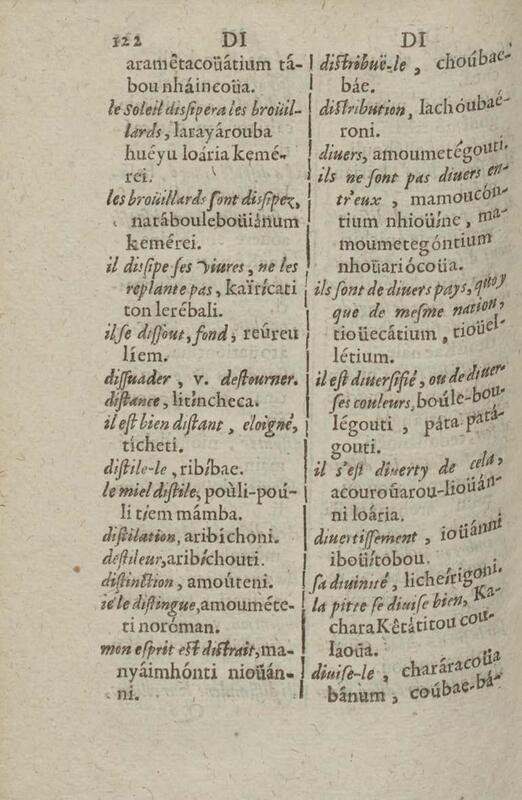 122 DI DI
aramêtacoüátium tá-
bou nháincoüa.
le soleil dissipera les broüil-
lards, larayárouba
huéyu loária kemé-
rei.
les broüillards sont dissipez,
natábouleboüiánum
kemérei.
il dissipe ses viures, ne les
replante pas, kaïrícati
ton lerébali.
il se dissout, fond, reûreu
líem.
dissuader, v. destourner.
distance, litíncheca.
il est bien distant, eloigné,
tícheti.
distile-le, ribíbae.
le miel distile, poùli-poú-
li tiem mámba.
distilation, aribíchoni.
destileur, aribíchouti.
distinction, amoúteni.
ie le distingue, amouméte-
ti noróman.
mon esprit est distrait, ma-
nyáimhónti nioüán-
ni.
distribuë-le, choúbae-
báe.
distribution, Iachóubaé-
roni.
diuers, amoumetégouti.
ils ne sont pas diuers en-
tr'eux, mamoucón-
tium nhioüíne, ma-
moumetegóntium
nhoüariócoüa.
ils sont de diuers pays, quoy
que de mesme nation,
tioüecátium, tioüel-
létium.
il est diuersifié, ou de diuer
ses couleurs, boúle-bou-
légouti, páta-patá-
gouti.
il s'est diuerty de cela,
acouroüarou-lioüán-
ni loária.
diuertissement, ioüánni
iboüítobou.
sa diuinité, licheírigoni.
la pitre se diuise bien, Ka-
charaKêtátitou cou-
laoüa.
diuise-le, charáracoüa
bánum, coúbae-bá-